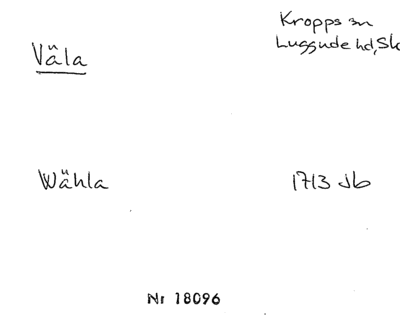 Väla
Kropps sn
Luggude hd, Sk
Wähla
1713 Jb
Nr 18096